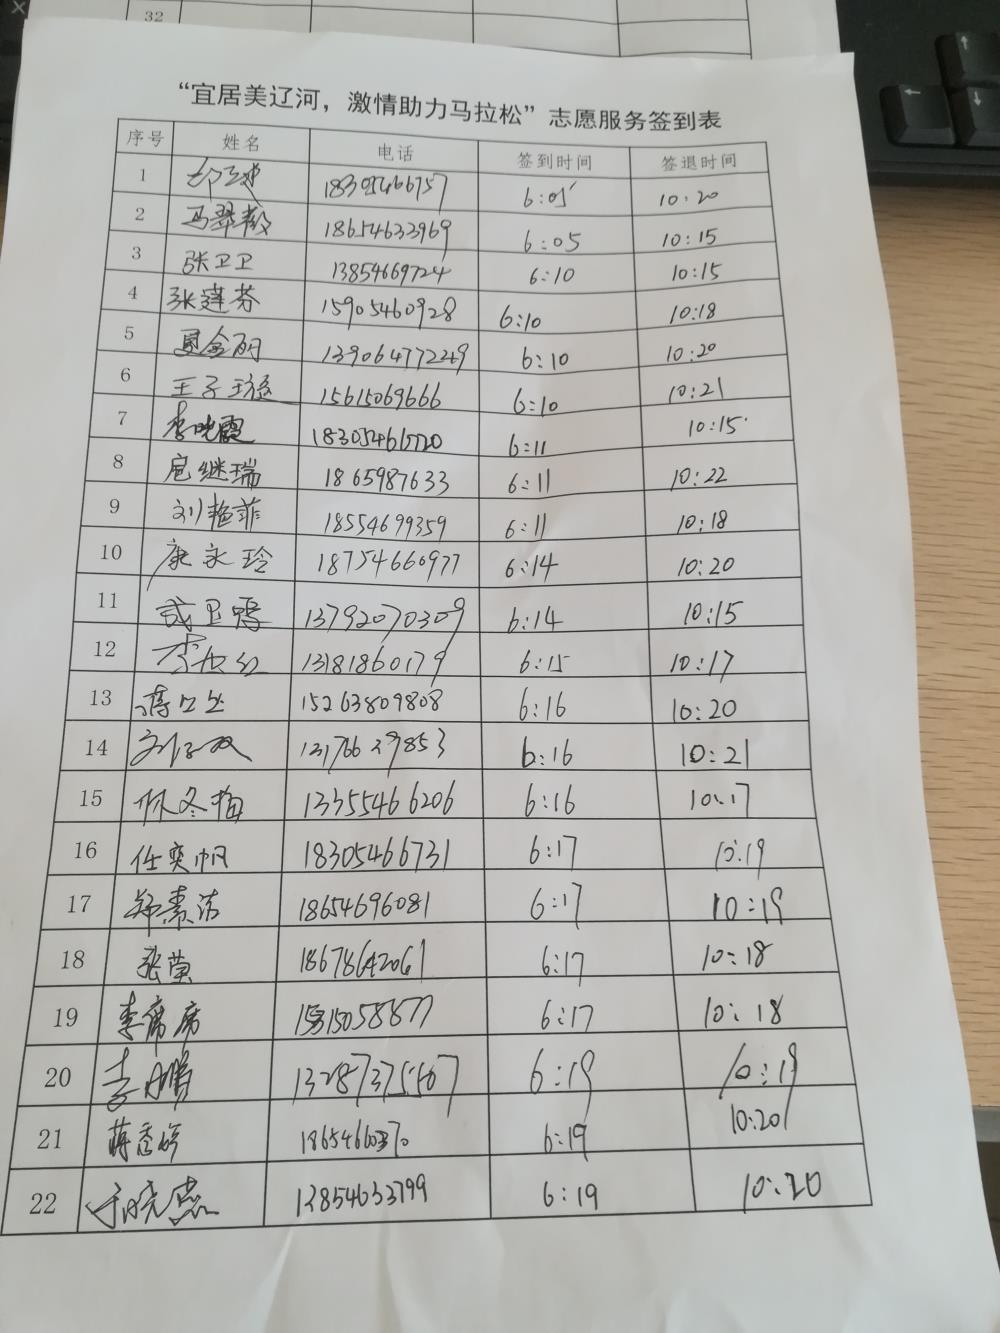 32
“宜居美辽河，激情助力马拉松”志愿服务签到表
序号 姓名 电话 签到时间 签退时间
1 6:05 10:20
2 马翠 18654633969 6:05 10:15
3 张卫卫 13854669724 6:10 10:15
4 张莲芬 15905460928 6:10 10:18
5 夏金丽 139064772249 6:10 10:20
6 王子 15615069666 6:10 10:21
7 李晓霞 6:11 10:15
8 扈继瑞 1865987633 6:11 10:22
9 刘艳菲 18554699359 6:11 10:18
10 康永玲 18754660977 6:14 10:20
11 武卫鸭 13792070309 6:14 10:15
12 13181860179 6:15 10:17
13 15263809808 6:16 10:20
14 13176629853 6:16 10:21
15 林冬梅 13355466206 6:16 10:17
16 任奕帆 18305466731 6:17 10:19
17 郑素洁 18654696081 6:17 10:19
18 张莹 18678642061 6:17 10:18
19 李席席 6:17 10:18
20 李鹏 13287375507 6:19 10:19
21 蒋香 6:19 10:20
22 于晓燕 13854633799 6:19 10:20